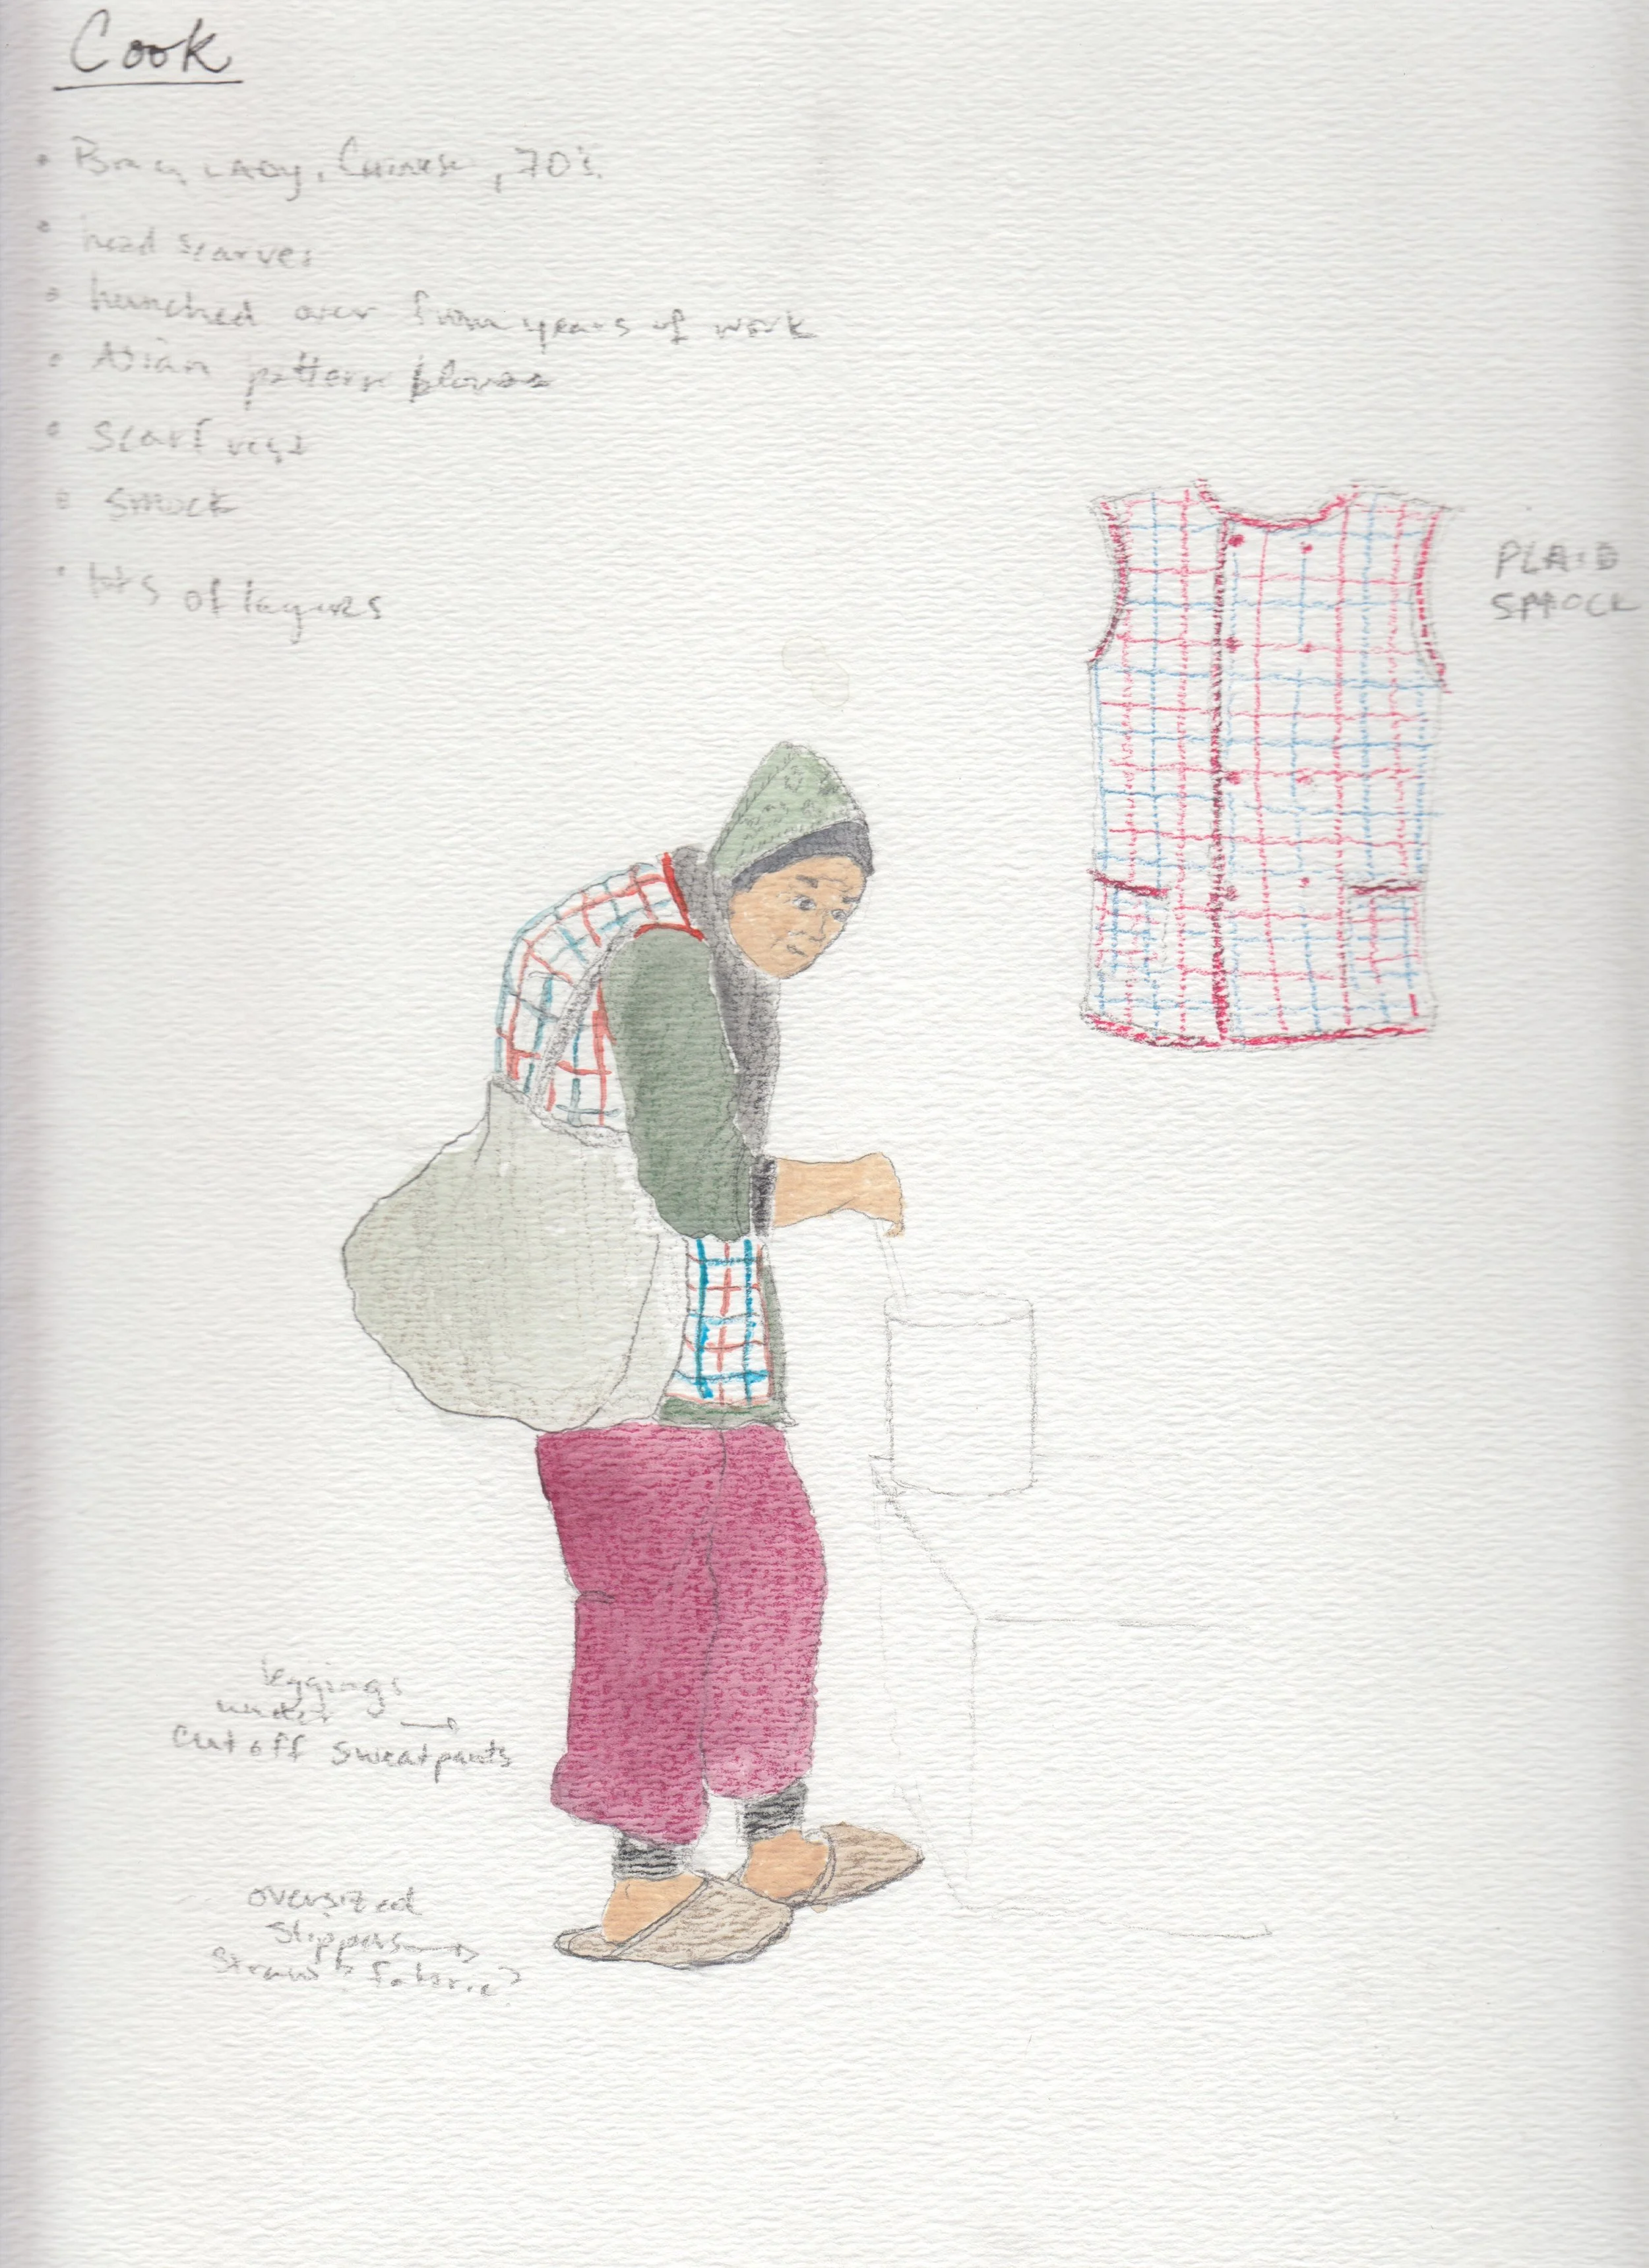 Cook
• Bag Lady, Chinese, 70's.
• head scarves
• hunched over from years of work
• Asian pattern blouse
• Scarf vest
• Smock
• lots of layers
PLAID
SMOCK
leggings
under →
Cut off sweatpants
oversized
slippers →
straw? fabric?